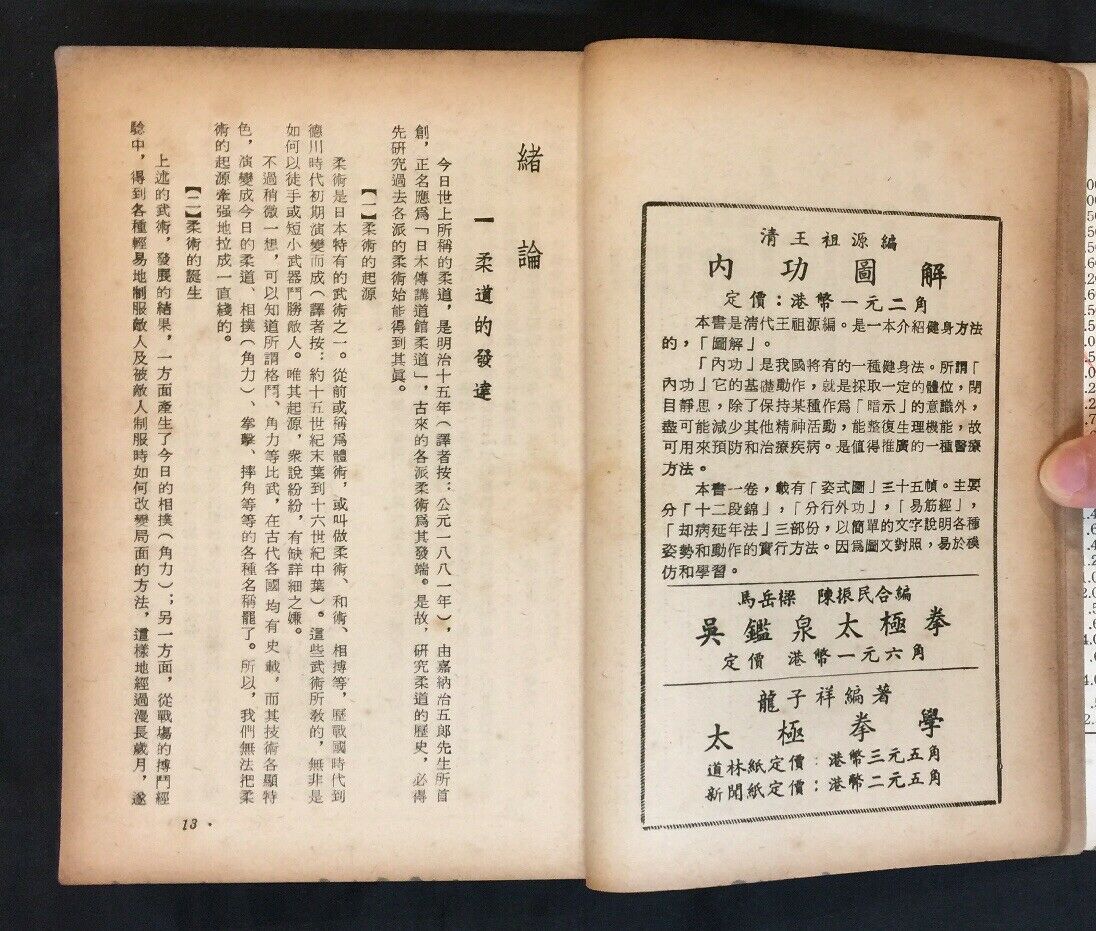 清王祖源編
內功圖解
定價：港幣一元二角
本書是淸代王祖源編。是一本介紹健身方法
的，「圖解」。
「內功」是我國將有的一種健身法。所謂「
內功」它的基礎動作，就是採取一定的體位，閉
目靜思，除了保持某種作爲「暗示」的意識外，
盡可能減少其他精神活動，能整復生理機能，故
可用來預防和治療疾病。是値得推廣的一種醫療
方法。
本書一卷，載有「姿式圖」三十五幀。主要
分「十二段錦」，「分行外功」，「易筋經」，
「却病延年法」三部份，以簡單的文字說明各種
姿勢和動作的實行方法。因爲圖文對照，易於模
仿和學習。
馬岳樑　陳振民合編
吳鑑泉太極拳
定價　港幣一元六角
龍子祥編著
太極拳學
道林紙定價：港幣三元五角
新聞紙定價：港幣二元五角
緒論
一　柔道的發達
今日世上所稱的柔道，是明治十五年（譯者按：公元一八八一年），由嘉納治五郎先生所首
創，正名應爲「日本傳講道館柔道」，古來的各派柔術爲其發端。是故，研究柔道的歷史，必得
先研究過去各派的柔術始能得到其眞。
【一】柔術的起源
柔術是日本特有的武術之一。從前或稱爲體術，或叫做柔術、和術、相搏等，歷戰國時代到
德川時代初期演變而成（譯者按：約十五世紀末葉到十六世紀中葉）。這些武術所教的，無非是
如何以徒手或短小武器鬥勝敵人。唯其起源，衆說紛紛，有缺詳細之嫌。
不過稍微一想，可以知道所謂格鬥、角力等比武，在古代各國均有史載，而其技術各顯特
色，演變成今日的柔道、相撲（角力）、拳擊、摔角等等的各種名稱罷了。所以，我們無法把柔
術的起源牽强地拉成一直綫的。
【二】柔術的誕生
上述的武術，發展的結果，一方面產生了今日的相撲（角力）；另一方面，從戰場的搏鬥經
驗中，得到各種輕易地制服敵人及被敵人制服時如何改變局面的方法，這樣地經過漫長歲月，遂
13 ·